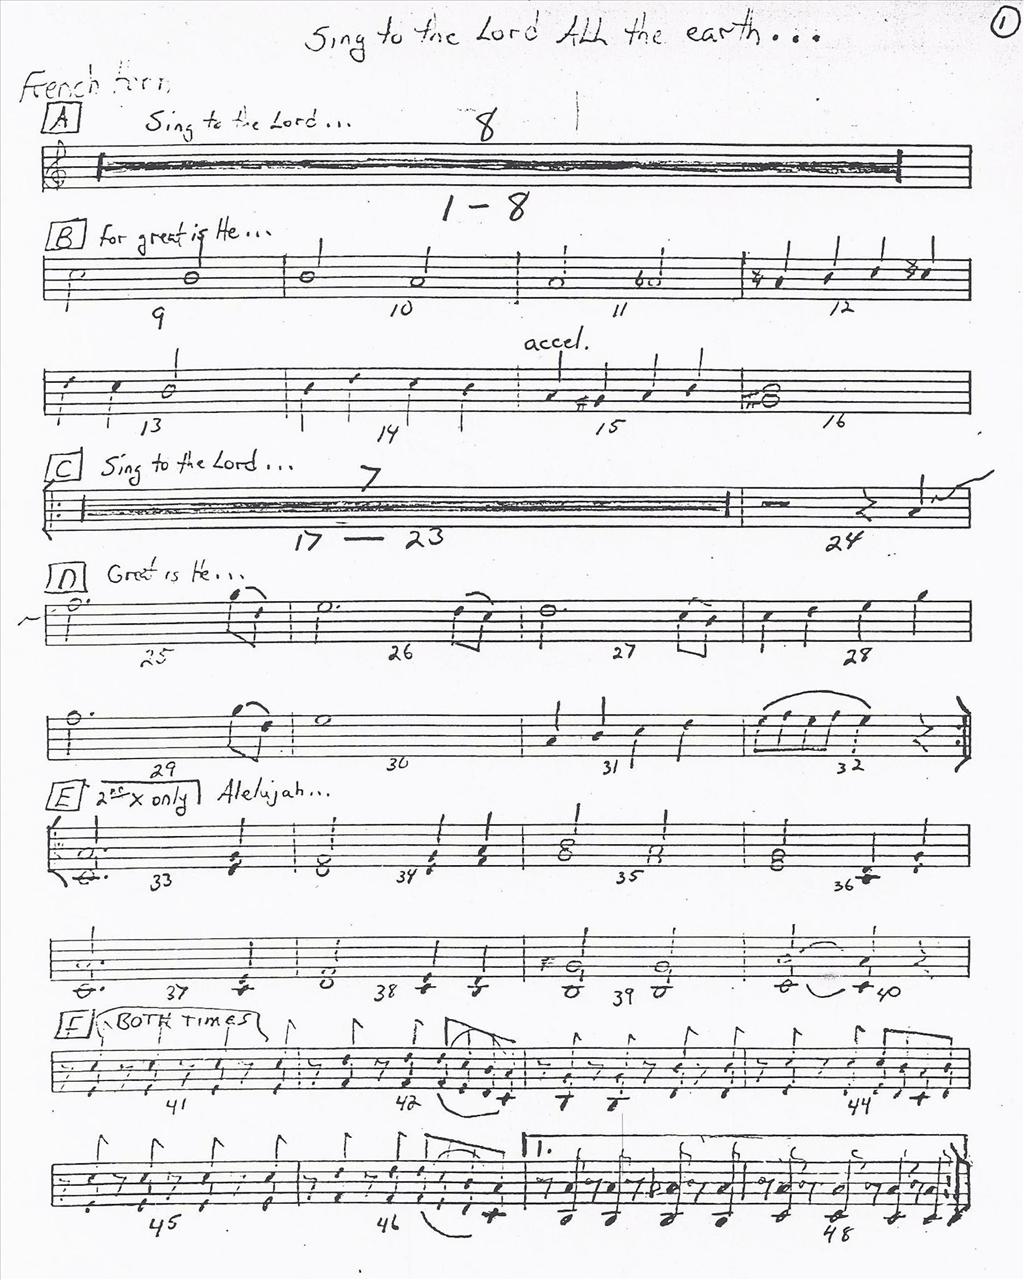 1
Sing to the Lord All the earth...
French Horn
A Sing to the Lord... 8
1 - 8
B for great is He...
9 10 11 12
accel.
13 14 15 16
C Sing to the Lord... 7
17 - 23 24
D Great is He...
25 26 27 28
29 30 31 32
E 2nd X only Alelujah...
33 34 35 36
37 38 39 40
F BOTH TIMES
41 42 44
1.
45 46 48